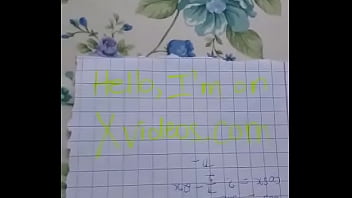 Hello, I'm on
Xvideos.com